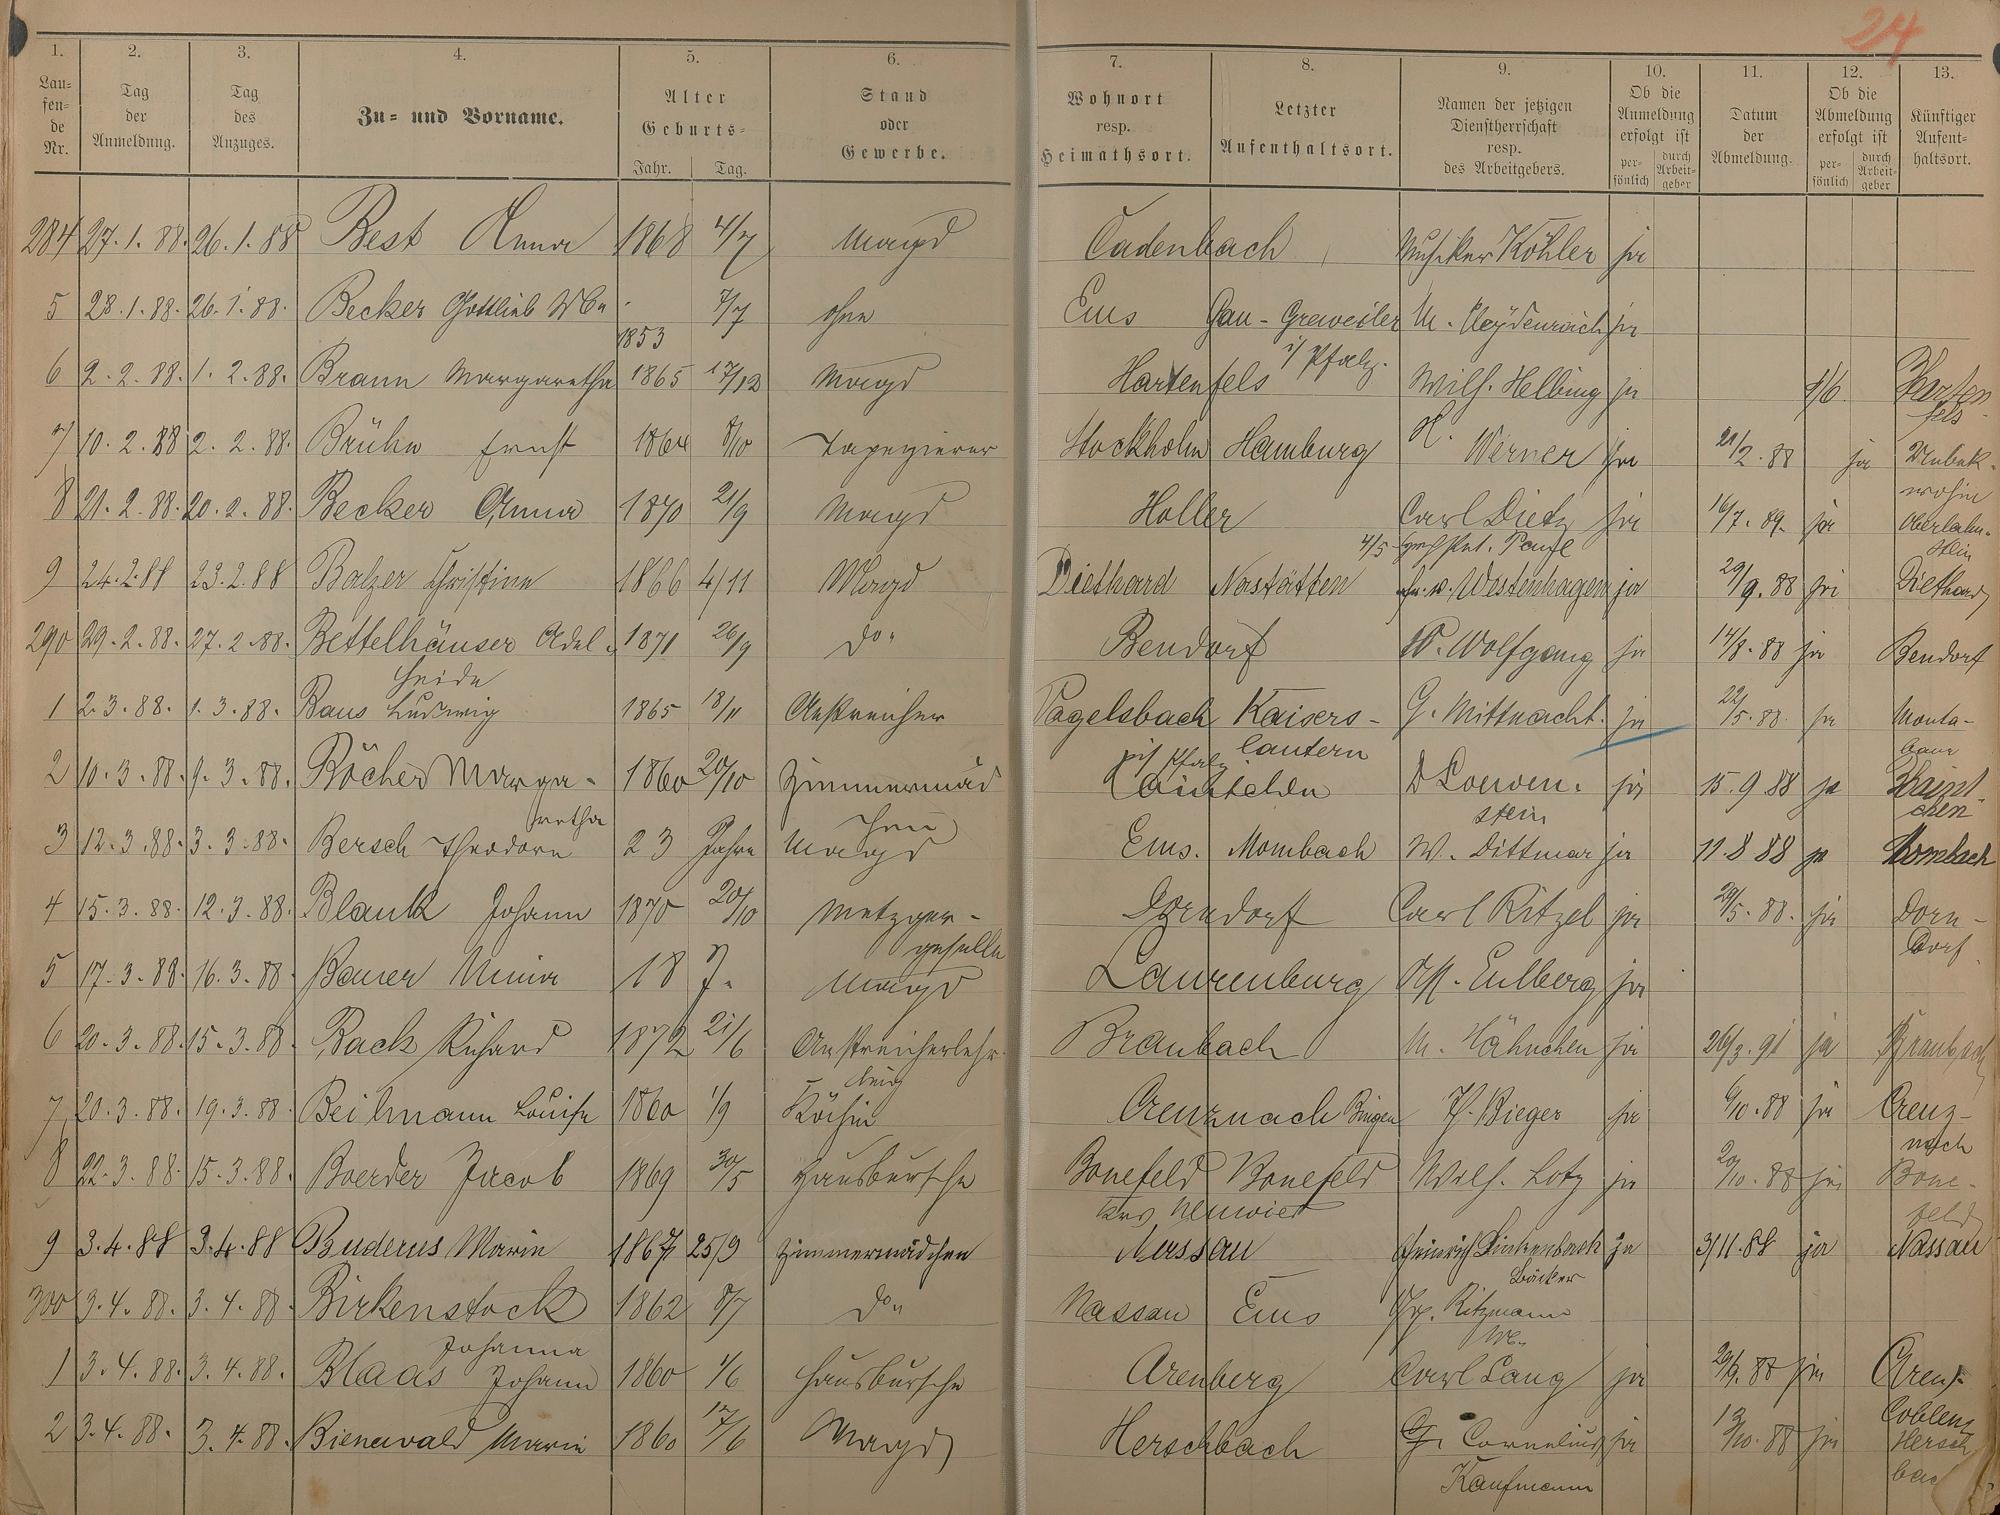 24
1. 2. 3. 4. 5. 6. 7. 8. 9. 10. 11. 12. 13.
Laufende Nr. Tag der Anmeldung. Tag des Anzuges. Zu- und Vorname. Alter Geburts- Jahr. Tag. Stand oder Gewerbe. Wohnort resp. Heimathsort. Letzter Aufenthaltsort. Namen der jetzigen Dienstherrschaft resp. des Arbeitgebers. Ob die Anmeldung erfolgt ist persönlich durch Arbeitgeber Datum der Abmeldung. Ob die Abmeldung erfolgt ist persönlich durch Arbeitgeber Künftiger Aufenthaltsort.
284 27. 1. 88. 26. 1. 88 Best Anna 1868 4/7 Magd Cadenbach Musiker Köhler ja
5 28. 1. 88. 26. 1. 88. Becker Gottlieb Wbe 1853 7/7 ohne Ems Gau-Greweiler i/ Pfalz. ja
6 2. 2. 88. 1. 2. 88. Braun Margaretha 1865 17/12 Magd Hartenfels Wilh. Helbing ja 1/6 Hartenfels
7 10. 2. 88 2. 2. 88. Brühn Ernst 1864 8/10 Tapezierer Stockholm Hamburg H. Werner ja 21/2. 88 ja Unbek. wohin
8 21. 2. 88. 20. 2. 88. Becker Anna 1870 21/9 Magd Holler Carl Dietz ja 16/7. 89. ja Oberlahnstein
9 24. 2. 88 23. 2. 88 Balzer Christine 1866 4/11 Magd Diethard Nastätten v. Westenhagen ja 29/9. 88 ja Diethard
290 29. 2. 88. 27. 2. 88. Bettelhäuser Adelheide 1871 26/9 do. Bendorf W. Wolfgang ja 14/8. 88 ja Bendorf
1 2. 3. 88. 1. 3. 88. Baus Ludwig 1865 18/11 Anstreicher Vogelsbach i/ Pfalz Kaiserslautern G. Mittnacht. ja 22/5. 88. ja Montabaur
2 10. 3. 88. 9. 3. 88. Böcher Margaretha 1860 20/10 Zimmermädchen D Loewenstein ja 15. 9 88 ja
3 12. 3. 88. 3. 3. 88. Bersch Theodora 23 Jahre Magd Ems. Mombach W. Dittmar ja 11. 8 88 ja Mombach
4 15. 3. 88. 12. 3. 88. Blank Johann 1870 20/10 Metzgergeselle Dorndorf Carl Ritzel ja 29/5. 88. ja Dorndorf
5 17. 3. 88 16. 3. 88 Bauer Mina 18 J. Magd Laurenburg Eulberg ja
6 20. 3. 88. 15. 3. 88. Back Richard 1872 21/6 Anstreicherlehrling Braubach M. Hähnchen ja 26/3. 91 ja Braubach
7 20. 3. 88. 19. 3. 88. Beilmann Louise 1860 1/9 Köchin Creuznach Bingen H. Bieger ja 6/10. 88 ja Creuznach
8 22. 3. 88. 15. 3. 88. Boerder Jacob 1869 30/5 Hausbursche Bonefeld Krs Neuwied Bonefeld Wilh. Lotz ja 20/10. 88 ja Bonefeld
9 3. 4. 88 3. 4. 88 Buderus Marie 1867 25/9 Zimmermädchen Nassau Heinrich Linkenbach Bäcker ja 3/11. 88 ja Nassau
300 3. 4. 88. 3. 4. 88. Birkenstock Johanna 1862 8/7 do. Nassau Ems Ritzmann We.
1 3. 4. 88. 3. 4. 88. Blaas Johann 1860 1/6 Hausbursche Arenberg Carl Lang ja 29/9. 88 ja
2 3. 4. 88. 3. 4. 88. Bienewald Marie 1860 17/6 Magd Herschbach G. Cornelius Kaufmann ja 13/10. 88 ja